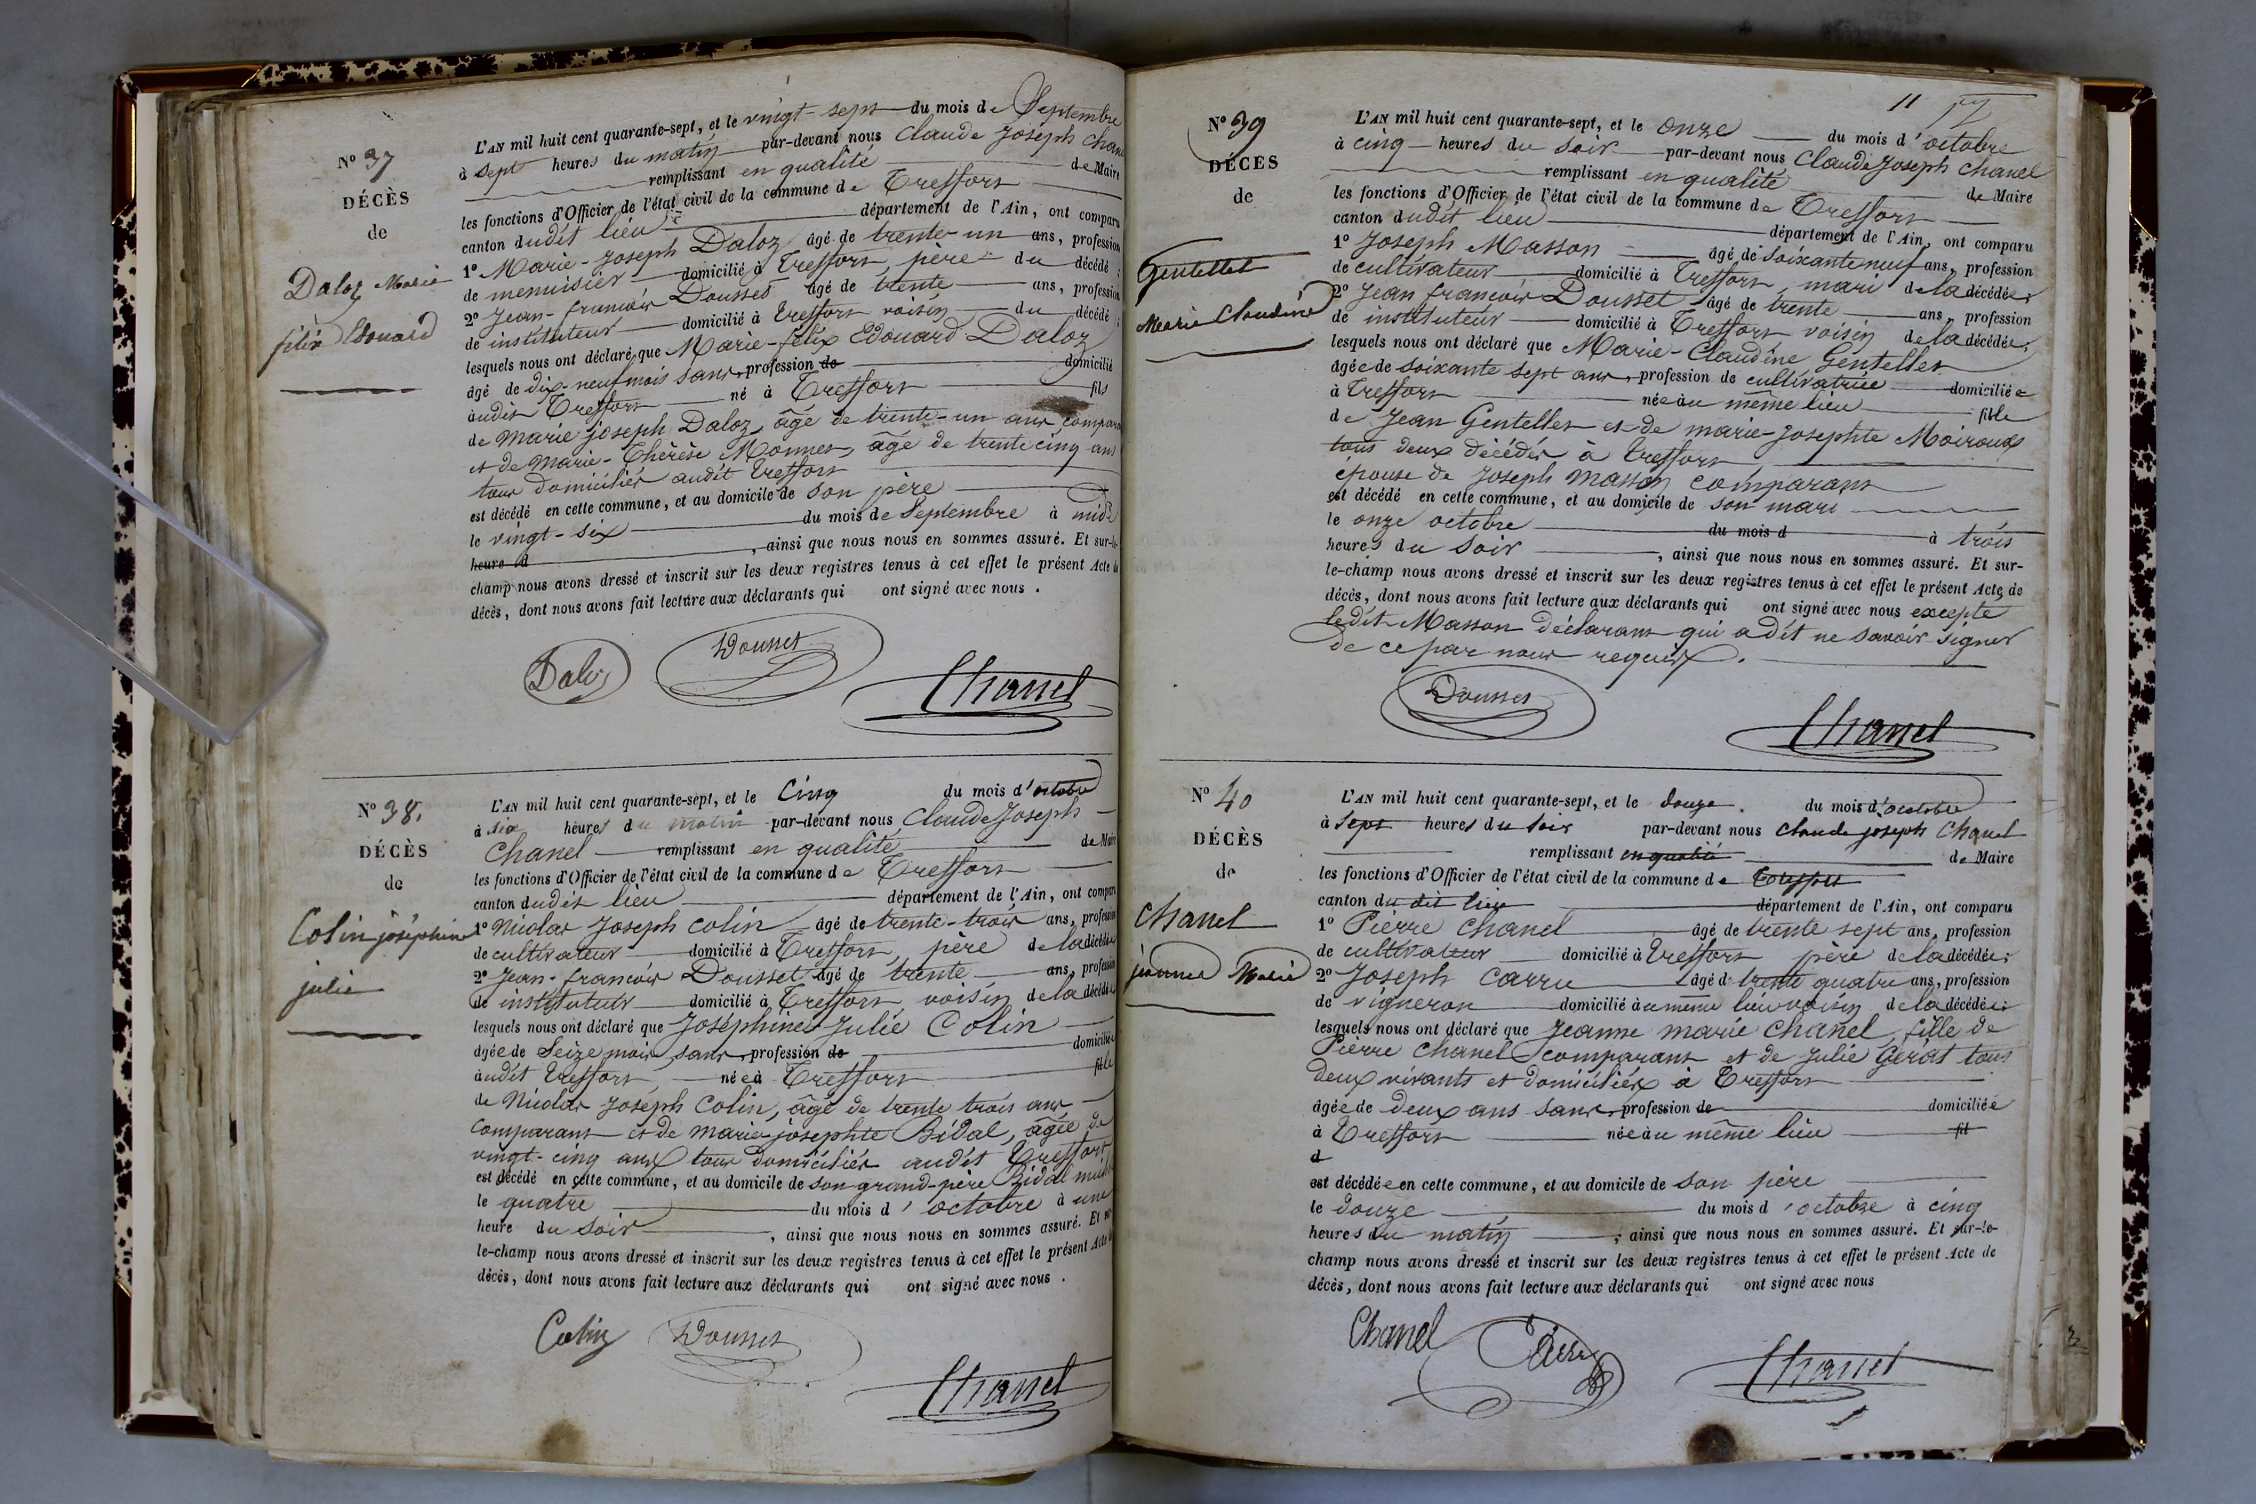 Nº 37
DÉCÈS
de
Daloz Marie
félix Edouard
L'AN mil huit cent quarante-sept, et le vingt-sept du mois de Septembre
à sept heures du matin par-devant nous Claude Joseph Chanel
remplissant en qualité de Maire
les fonctions d'Officier de l'état civil de la commune de Treffort
canton dudit lieu département de l'Ain, ont comparu
1º Marie-Joseph Daloz âgé de trente-un ans, profession
de menuisier domicilié à Treffort, père du décédé;
2º Jean-françois Dousset âgé de trente ans, profession
de instituteur domicilié à Treffort voisin du décédé;
lesquels nous ont déclaré que Marie-félix Edouard Daloz
âgé de dix-neuf mois sans profession de domicilié
audit Treffort né à Treffort fils
de Marie joseph Daloz, âgé de trente-un ans comparant
et de Marie-Thérèse Monnet, âgé de trente cinq ans
tous domiciliés audit Treffort
est décédé en cette commune, et au domicile de son père
le vingt-six du mois de Septembre à midi
heure d , ainsi que nous nous en sommes assuré. Et sur-le-
champ nous avons dressé et inscrit sur les deux registres tenus à cet effet le présent Acte de
décès, dont nous avons fait lecture aux déclarants qui ont signé avec nous.
Daloz Dousset
Chanel
Nº 38.
DÉCÈS
de
Colin joséphine
julie
L'AN mil huit cent quarante-sept, et le Cinq du mois d'octobre
à six heures du matin par-devant nous Claude Joseph
Chanel remplissant en qualité de Maire
les fonctions d'Officier de l'état civil de la commune de Treffort
canton dudit lieu département de l'Ain, ont comparu
1º Nicolas Joseph Colin âgé de trente-trois ans, profession
de cultivateur domicilié à Treffort, père de la décédée
2º Jean-françois Dousset âgé de trente ans, profession
de instituteur domicilié à Treffort, voisin de la décédée
lesquels nous ont déclaré que Joséphine Julie Colin
âgée de Seize mois sans profession de domiciliée
audit Treffort, née à Treffort fille
de Nicolas Joseph Colin, âgé de trente trois ans
comparant et de Marie-josephte Bidal, âgée de
vingt-cinq ans tous domiciliés audit Treffort
est décédé en cette commune, et au domicile de son grand-père Bidal
le quatre du mois d'octobre à une
heure du soir , ainsi que nous nous en sommes assuré. Et sur-
le-champ nous avons dressé et inscrit sur les deux registres tenus à cet effet le présent Acte de
décès, dont nous avons fait lecture aux déclarants qui ont signé avec nous.
Colin Dousset
Chanel
11
Nº 39
DÉCÈS
de
Gentellet
Marie Claudine
L'AN mil huit cent quarante-sept, et le onze du mois d'octobre
à cinq heures du soir par-devant nous Claude Joseph Chanel
remplissant en qualité de Maire
les fonctions d'Officier de l'état civil de la commune de Treffort
canton dudit lieu département de l'Ain, ont comparu
1º Joseph Masson âgé de soixante neuf ans, profession
de cultivateur domicilié à Treffort, mari de la décédée;
2º Jean françois Dousset âgé de trente ans, profession
de instituteur domicilié à Treffort voisin de la décédée;
lesquels nous ont déclaré que Marie-Claudine Gentellet
âgée de soixante sept ans, profession de cultivatrice domiciliée
à Treffort née au même lieu fille
de Jean Gentellet et de marie-Josephte Moiroux
tous deux décédés à Treffort
épouse de Joseph Masson comparant
est décédé en cette commune, et au domicile de son mari
le onze octobre du mois d à trois
heures du soir , ainsi que nous nous en sommes assuré. Et sur-
le-champ nous avons dressé et inscrit sur les deux registres tenus à cet effet le présent Acte de
décès, dont nous avons fait lecture aux déclarants qui ont signé avec nous excepté
ledit Masson déclarant qui a dit ne savoir signer
de ce par nous requis.
Dousset
Chanel
Nº 40
DÉCÈS
de
Chanel
jeanne Marie
L'AN mil huit cent quarante-sept, et le douze du mois d'octobre
à sept heures du soir par-devant nous Claude joseph Chanel
remplissant en qualité de Maire
les fonctions d'Officier de l'état civil de la commune de Treffort
canton du dit lieu département de l'Ain, ont comparu
1º Pierre Chanel âgé de trente sept ans, profession
de cultivateur domicilié à Treffort père de la décédée;
2º Joseph Carru âgé de trente quatre ans, profession
de vigneron domicilié au même lieu voisin de la décédée;
lesquels nous ont déclaré que Jeanne marie Chanel, fille de
Pierre Chanel comparant et de Julie Gerat tous
deux vivants et domiciliés à Treffort
âgée de deux ans sans profession de domiciliée
à Treffort née au même lieu fil
d
est décédée en cette commune, et au domicile de son père
le douze du mois d'octobre à cinq
heures du matin ; ainsi que nous nous en sommes assuré. Et sur-le-
champ nous avons dressé et inscrit sur les deux registres tenus à cet effet le présent Acte de
décès, dont nous avons fait lecture aux déclarants qui ont signé avec nous
Chanel
Chanel